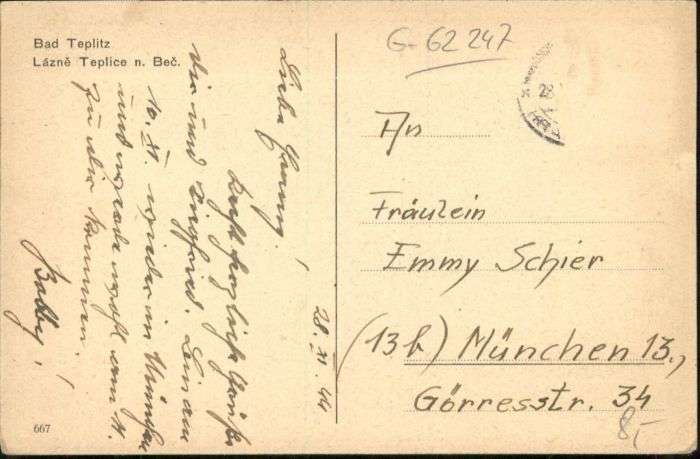 Bad Teplitz
Lázně Teplice n. Beč.
28. XI. 44
Liebe Emmy!
Recht herzliche Grüße
Dir und Siegfried. Bin am
10. XI. wieder in München
und werde wohl am 11.
zu dir kommen.
667
G-62247
28
An
Fräulein
Emmy Schier
(13b) München 13.,
Görresstr. 34
8,-